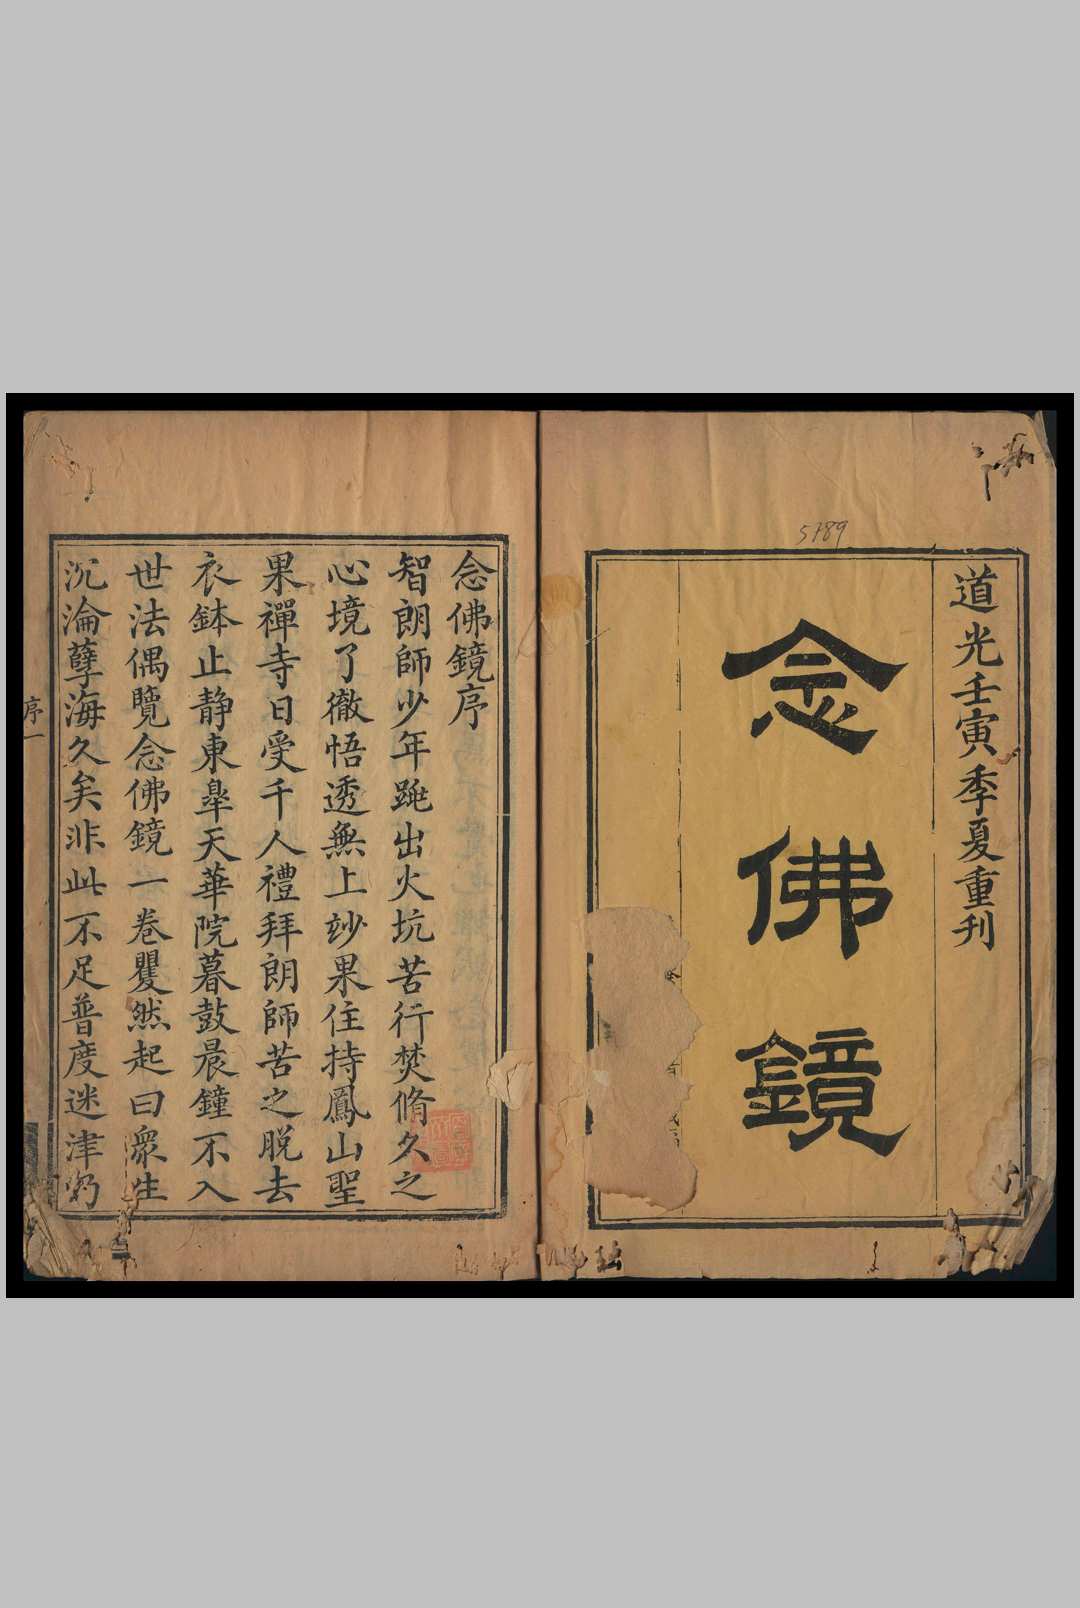 5789
道光壬寅季夏重刊
念佛鏡
念佛鏡序
智朗師少年跳出火坑苦行焚脩久之
心境了徹悟透無上玅果住持鳳山聖
果禪寺日受千人禮拜朗師苦之脫去
衣鉢止静東皐天華院暮鼓晨鐘不入
世法偶覽念佛鏡一卷瞿然起曰衆生
沉淪孽海久矣非此不足普度迷津
序一